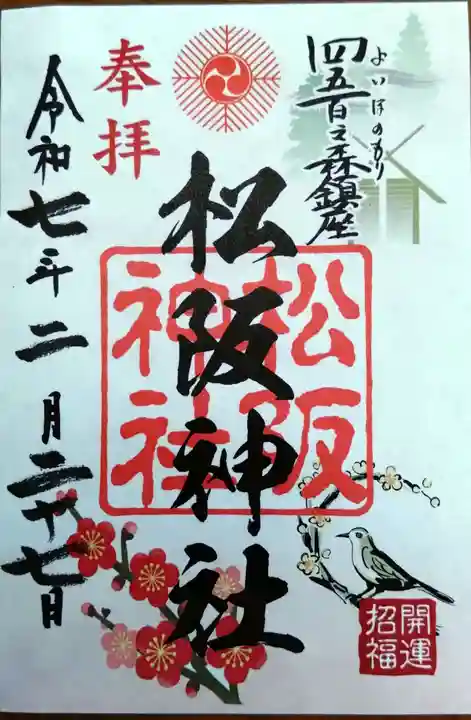 四五百之森鎮座
よいほのもり
奉拝
松阪神社
松阪神社
令和七年二月二十七日
開運
招福